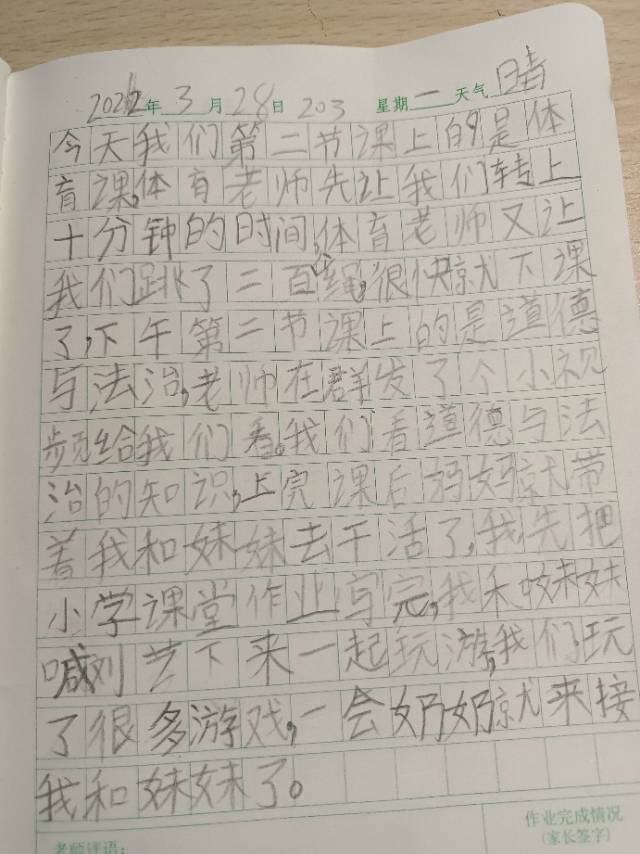 2022年3月28日 203 星期一天气晴
今天我们第二节课上的是体
育课,体育老师先让我们转上
十分钟的时间,体育老师又让
我们跳了二百个绳,很快就下课
了,下午第二节课上的是道德
与法治,老师在群发了个小视
频给我们看。我们看道德与法
治的知识,上完课后妈妈就带
着我和妹妹去干活了,我先把
小学课堂作业写完,我和妹妹
喊刘艺下来一起玩游,我们玩
了很多游戏,一会奶奶就来接
我和妹妹了。
老师评语:
作业完成情况
(家长签字)